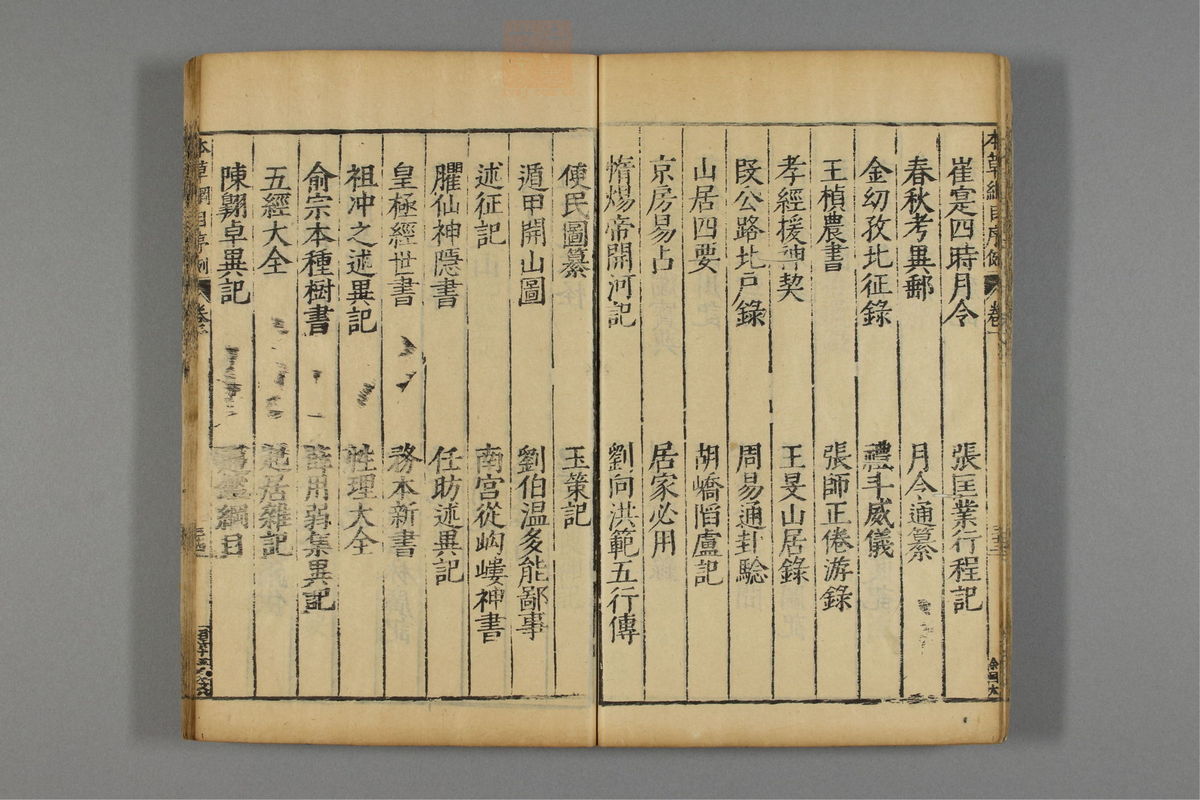 崔寔四時月令　張匡業行程記
春秋考異郵　月令通纂
金幼孜北征錄　禮斗威儀
王楨農書　張師正倦游錄
孝經援神契　王旻山居錄
段公路北戶錄　周易通卦驗
山居四要　胡嶠陷盧記
京房易占　居家必用
惰煬帝開河記　劉向洪範五行傳
便民圖纂　玉策記
遁甲開山圖　劉伯温多能鄙事
述征記　南宮從岣嶁神書
臞仙神隱書　任昉述異記
皇極經世書　務本新書
祖冲之述異記　性理大全
俞宗本種樹書　薛用弱集異記
五經大全　居雜記
陳翺卓異記　鑑綱目
本草綱目序例　卷